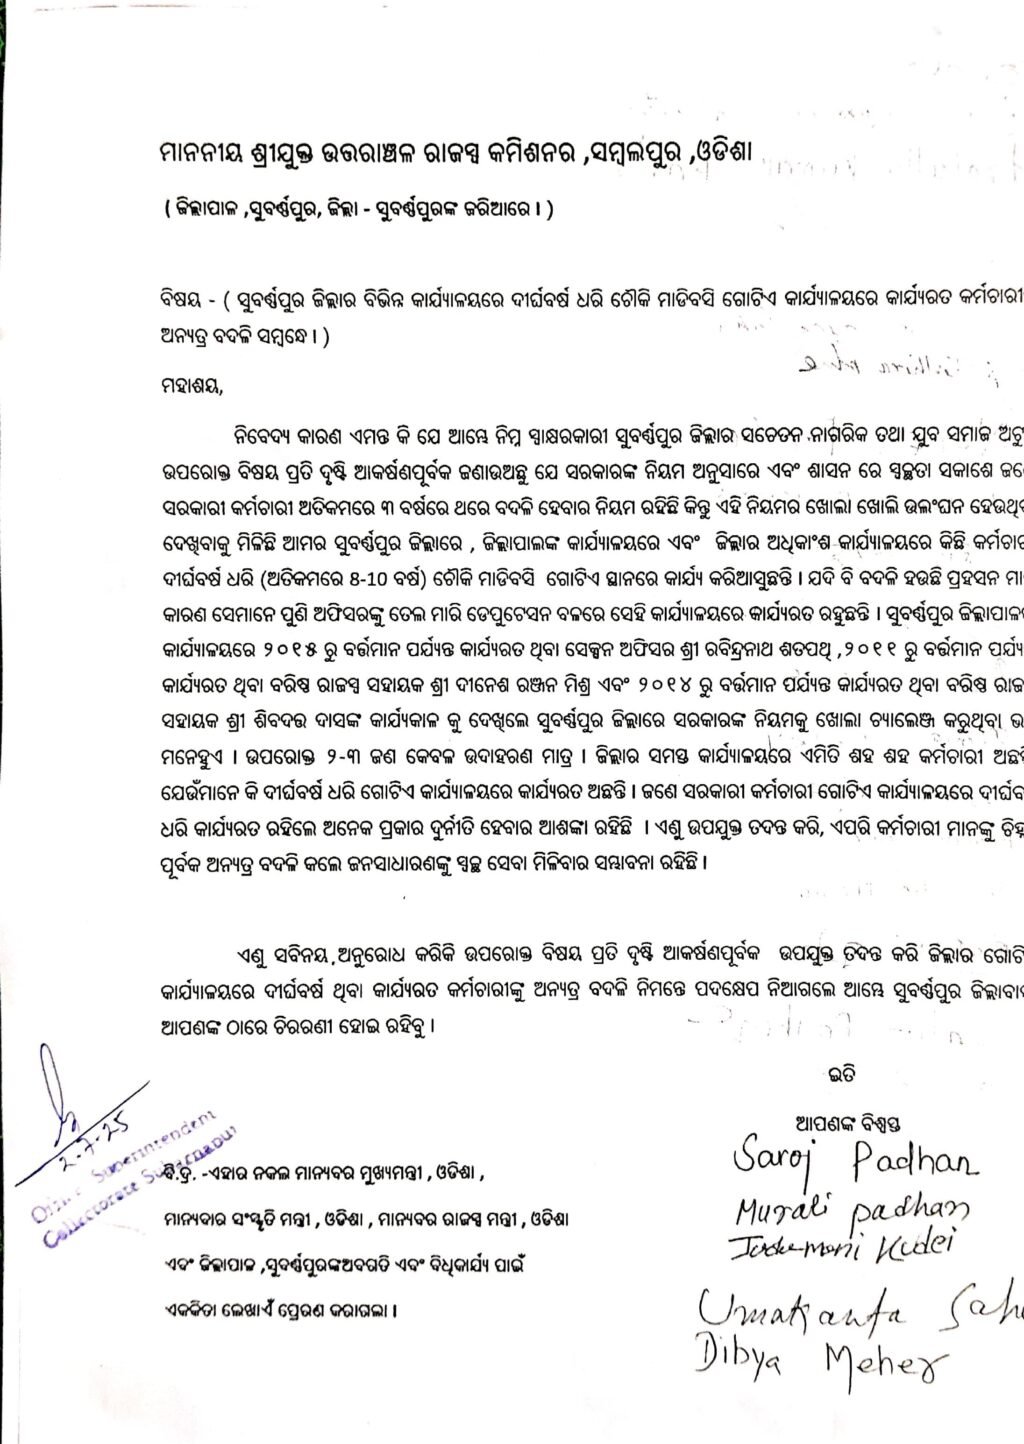 ମାନନୀୟ ଶ୍ରୀଯୁକ୍ତ ଉତ୍ତରାଞ୍ଚଳ ରାଜସ୍ୱ କମିଶନର ,ସମ୍ବଲପୁର ,ଓଡିଶା
( ଜିଲ୍ଲାପାଳ ,ସୁବର୍ଣ୍ଣପୁର, ଜିଲ୍ଲା - ସୁବର୍ଣ୍ଣପୁରଙ୍କ ଜରିଆରେ । )
ବିଷୟ - ( ସୁବର୍ଣ୍ଣପୁର ଜିଲ୍ଲାର ବିଭିନ୍ନ କାର୍ଯ୍ୟାଳୟରେ ଦୀର୍ଘବର୍ଷ ଧରି ଚୌକି ମାଡିବସି ଗୋଟିଏ କାର୍ଯ୍ୟାଳୟରେ କାର୍ଯ୍ୟରତ କର୍ମଚାରୀ
ଅନ୍ୟତ୍ର ବଦଳି ସମ୍ବନ୍ଧେ । )
ମହାଶୟ,
ନିବେଦ୍ୟ କାରଣ ଏମନ୍ତ କି ଯେ ଆମ୍ଭେ ନିମ୍ନ ସ୍ୱାକ୍ଷରକାରୀ ସୁବର୍ଣ୍ଣପୁର ଜିଲ୍ଲାର ସଚେତନ ନାଗରିକ ତଥା ଯୁବ ସମାଜ ଅଟୁ
ଉପରୋକ୍ତ ବିଷୟ ପ୍ରତି ଦୃଷ୍ଟି ଆକର୍ଷଣପୂର୍ବକ ଜଣାଉଅଛୁ ଯେ ସରକାରଙ୍କ ନିୟମ ଅନୁସାରେ ଏବଂ ଶାସନ ରେ ସ୍ୱଚ୍ଛତା ସକାଶେ ଜଣେ
ସରକାରୀ କର୍ମଚାରୀ ଅତିକମରେ ୩ ବର୍ଷରେ ଥରେ ବଦଳି ହେବାର ନିୟମ ରହିଛି କିନ୍ତୁ ଏହି ନିୟମର ଖୋଲା ଖୋଲି ଉଲଂଘନ ହେଉଥିବ
ଦେଖିବାକୁ ମିଳିଛି ଆମର ସୁବର୍ଣ୍ଣପୁର ଜିଲ୍ଲାରେ , ଜିଲ୍ଲାପାଲଙ୍କ କାର୍ଯ୍ୟାଳୟରେ ଏବଂ ଜିଲ୍ଲାର ଅଧିକାଂଶ କାର୍ଯ୍ୟାଳୟରେ କିଛି କର୍ମଚାର
ଦୀର୍ଘବର୍ଷ ଧରି (ଅତିକମରେ 8-10 ବର୍ଷ) ଚୌକି ମାଡିବସି ଗୋଟିଏ ସ୍ଥାନରେ କାର୍ଯ୍ୟ କରିଆସୁଛନ୍ତି । ଯଦି ବି ବଦଳି ହଉଛି ପ୍ରହସନ ମା
କାରଣ ସେମାନେ ପୁଣି ଅଫିସରଙ୍କୁ ତେଲ ମାରି ଡେପୁଟେସନ ବଳରେ ସେହି କାର୍ଯ୍ୟାଳୟରେ କାର୍ଯ୍ୟରତ ରହୁଛନ୍ତି । ସୁବର୍ଣ୍ଣପୁର ଜିଲ୍ଲାପାଳ
କାର୍ଯ୍ୟାଳୟରେ ୨୦୧୫ ରୁ ବର୍ତ୍ତମାନ ପର୍ଯ୍ୟନ୍ତ କାର୍ଯ୍ୟରତ ଥିବା ସେକ୍ସନ ଅଫିସର ଶ୍ରୀ ରବିନ୍ଦ୍ରନାଥ ଶତପଥି ,୨୦୧୧ ରୁ ବର୍ତ୍ତମାନ ପର୍ଯ୍ୟ
କାର୍ଯ୍ୟରତ ଥିବା ବରିଷ୍ଠ ରାଜସ୍ୱ ସହାୟକ ଶ୍ରୀ ଦୀନେଶ ରଞ୍ଜନ ମିଶ୍ର ଏବଂ ୨୦୧୪ ରୁ ବର୍ତ୍ତମାନ ପର୍ଯ୍ୟନ୍ତ କାର୍ଯ୍ୟରତ ଥିବା ବରିଷ୍ଠ ରାଜ
ସହାୟକ ଶ୍ରୀ ଶିବଦତ୍ତ ଦାସଙ୍କ କାର୍ଯ୍ୟକାଳ କୁ ଦେଖିଲେ ସୁବର୍ଣ୍ଣପୁର ଜିଲ୍ଲାରେ ସରକାରଙ୍କ ନିୟମକୁ ଖୋଲା ଚ୍ୟାଲେଞ୍ଜ କରୁଥିବା ଭ
ମନେହୁଏ । ଉପରୋକ୍ତ ୨-୩ ଜଣ କେବଳ ଉଦାହରଣ ମାତ୍ର । ଜିଲ୍ଲାର ସମସ୍ତ କାର୍ଯ୍ୟାଳୟରେ ଏମିତି ଶହ ଶହ କର୍ମଚାରୀ ଅଛନ୍ତି
ଯେଉଁମାନେ କି ଦୀର୍ଘବର୍ଷ ଧରି ଗୋଟିଏ କାର୍ଯ୍ୟାଳୟରେ କାର୍ଯ୍ୟରତ ଅଛନ୍ତି । ଜଣେ ସରକାରୀ କର୍ମଚାରୀ ଗୋଟିଏ କାର୍ଯ୍ୟାଳୟରେ ଦୀର୍ଘବ
ଧରି କାର୍ଯ୍ୟରତ ରହିଲେ ଅନେକ ପ୍ରକାର ଦୁର୍ନୀତି ହେବାର ଆଶଙ୍କା ରହିଛି । ଏଣୁ ଉପଯୁକ୍ତ ତଦନ୍ତ କରି, ଏପରି କର୍ମଚାରୀ ମାନଙ୍କୁ ଚିହ୍ନ
ପୂର୍ବକ ଅନ୍ୟତ୍ର ବଦଳି କଲେ ଜନସାଧାରଣଙ୍କୁ ସ୍ୱଚ୍ଛ ସେବା ମିଳିବାର ସମ୍ଭାବନା ରହିଛି ।
ଏଣୁ ସବିନୟ ଅନୁରୋଧ କରିକି ଉପରୋକ୍ତ ବିଷୟ ପ୍ରତି ଦୃଷ୍ଟି ଆକର୍ଷଣପୂର୍ବକ ଉପଯୁକ୍ତ ତଦନ୍ତ କରି ଜିଲ୍ଲାର ଗୋଟି
କାର୍ଯ୍ୟାଳୟରେ ଦୀର୍ଘବର୍ଷ ଥିବା କାର୍ଯ୍ୟରତ କର୍ମଚାରୀଙ୍କୁ ଅନ୍ୟତ୍ର ବଦଳି ନିମନ୍ତେ ପଦକ୍ଷେପ ନିଆଗଲେ ଆମ୍ଭେ ସୁବର୍ଣ୍ଣପୁର ଜିଲ୍ଲାବା
ଆପଣଙ୍କ ଠାରେ ଚିରରଣୀ ହୋଇ ରହିବୁ ।
ଇତି
ଆପଣଙ୍କ ବିଶ୍ୱସ୍ତ
Saroj Padhan
Murali padhan
Kudei
Umakanta Sahu
Dibya Meher
2-7-25
Office Superintendent
Collectorate Subarnapur
ବି.ଦ୍ର. -ଏହାର ନକଲ ମାନ୍ୟବର ମୁଖ୍ୟମନ୍ତ୍ରୀ , ଓଡିଶା ,
ମାନ୍ୟବର ସଂସ୍କୃତି ମନ୍ତ୍ରୀ , ଓଡିଶା , ମାନ୍ୟବର ରାଜସ୍ୱ ମନ୍ତ୍ରୀ , ଓଡିଶା
ଏବଂ ଜିଲ୍ଲାପାଳ ,ସୁବର୍ଣ୍ଣପୁରଙ୍କଅବଗତି ଏବଂ ବିଧିକାର୍ଯ୍ୟ ପାଇଁ
ଏକକିତା ଲେଖାଏଁ ପ୍ରେରଣ କରାଗଲା ।